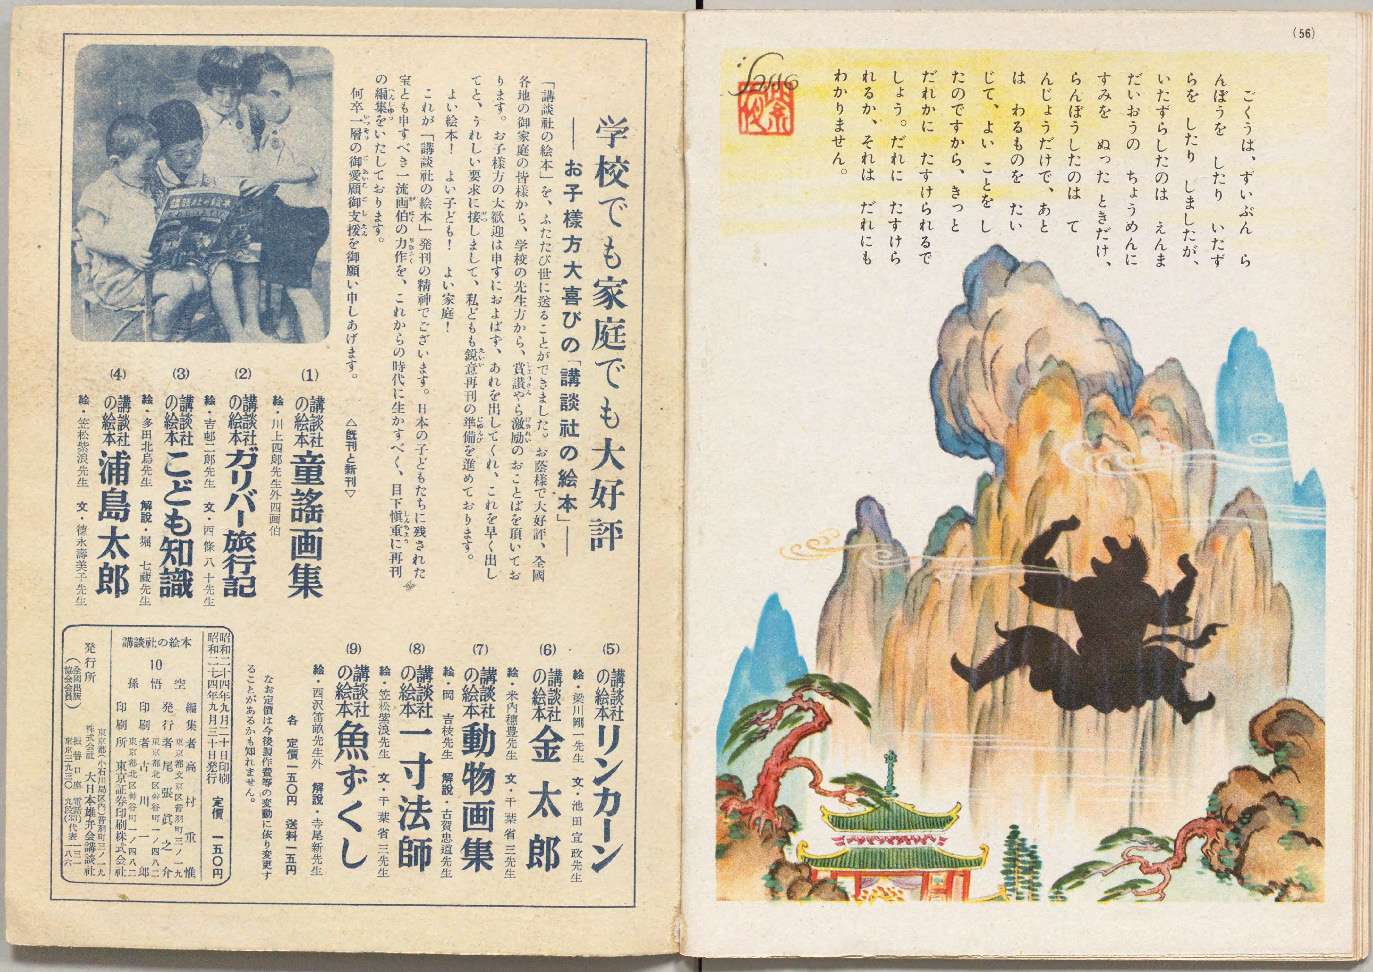 (56)
ごくうは、ずいぶん　ら
んぼうを　したり　いたず
らを　したり　しましたが、
いたずらしたのは　えんま
だいおうの　ちょうめんに
すみを　ぬった　ときだけ、
らんぼうしたのは　て
んじょうだけで、あと
は　わるものを　たい
じて、よい　ことを　し
たのですから、きっと
だれかに　たすけられるで
しょう。だれに　たすけら
れるか、それは　だれにも
わかりません。
学校でも家庭でも大好評
―お子樣方大喜びの「講談社の絵本」―
「講談社の絵本」を、ふたたび世に送ることができました。お蔭様で大好評、全國
各地の御家庭の皆様から、学校の先生方から、賞讃やら激励のおことばを頂いてお
ります。お子様方の大歓迎は申すにおよばず、あれを出してくれ、これを早く出し
てと、うれしい要求に接しまして、私ども鋭意再刊の準備を進めております。
よい絵本！　よい子ども！　よい家庭！
これが「講談社の絵本」発刊の精神でございます。日本の子どもたちに残された
宝とも申すべき一流画伯の力作を、これからの時代に生かすべく、目下愼重に再刊
の編集をいたしております。
何卒一層の御愛顧御支援を御願い申しあげます。
△既刊と新刊▽
(1) 講談社の絵本 童謠画集
絵・川上四郎先生外四画伯
(2) 講談社の絵本 ガリバー旅行記
絵・吉邨二郎先生　文・西條八十先生
(3) 講談社の絵本 こども知識
絵・多田北烏先生　解説・堀七蔵先生
(4) 講談社の絵本 浦島太郎
絵・笠松紫浪先生　文・德永壽美子先生
(5) 講談社の絵本 リンカーン
絵・梁川剛一先生　文・池田宣政先生
(6) 講談社の絵本 金太郎
絵・米内穗豊先生　文・千葉省三先生
(7) 講談社の絵本 動物画集
絵・岡吉枝先生　解説・古賀忠道先生
(8) 講談社の絵本 一寸法師
絵・笠松紫浪先生　文・千葉省三先生
(9) 講談社の絵本 魚ずくし
絵・西沢笛畝先生外　解説・寺尾新先生
各　定價一五〇円　送料一五円
なお定價は今後製作費等の変動に依り変更す
ることがあるかも知れません。
昭和二十四年九月二十日印刷
昭和二十四年九月三十日発行
定價　一五〇円
講談社の絵本　10　孫悟空
編集者　高村重惟
発行者　尾張眞之介
印刷者　古川一郎
印刷所　東京証券印刷株式会社
発行所
株式会社　大日本雄弁会講談社